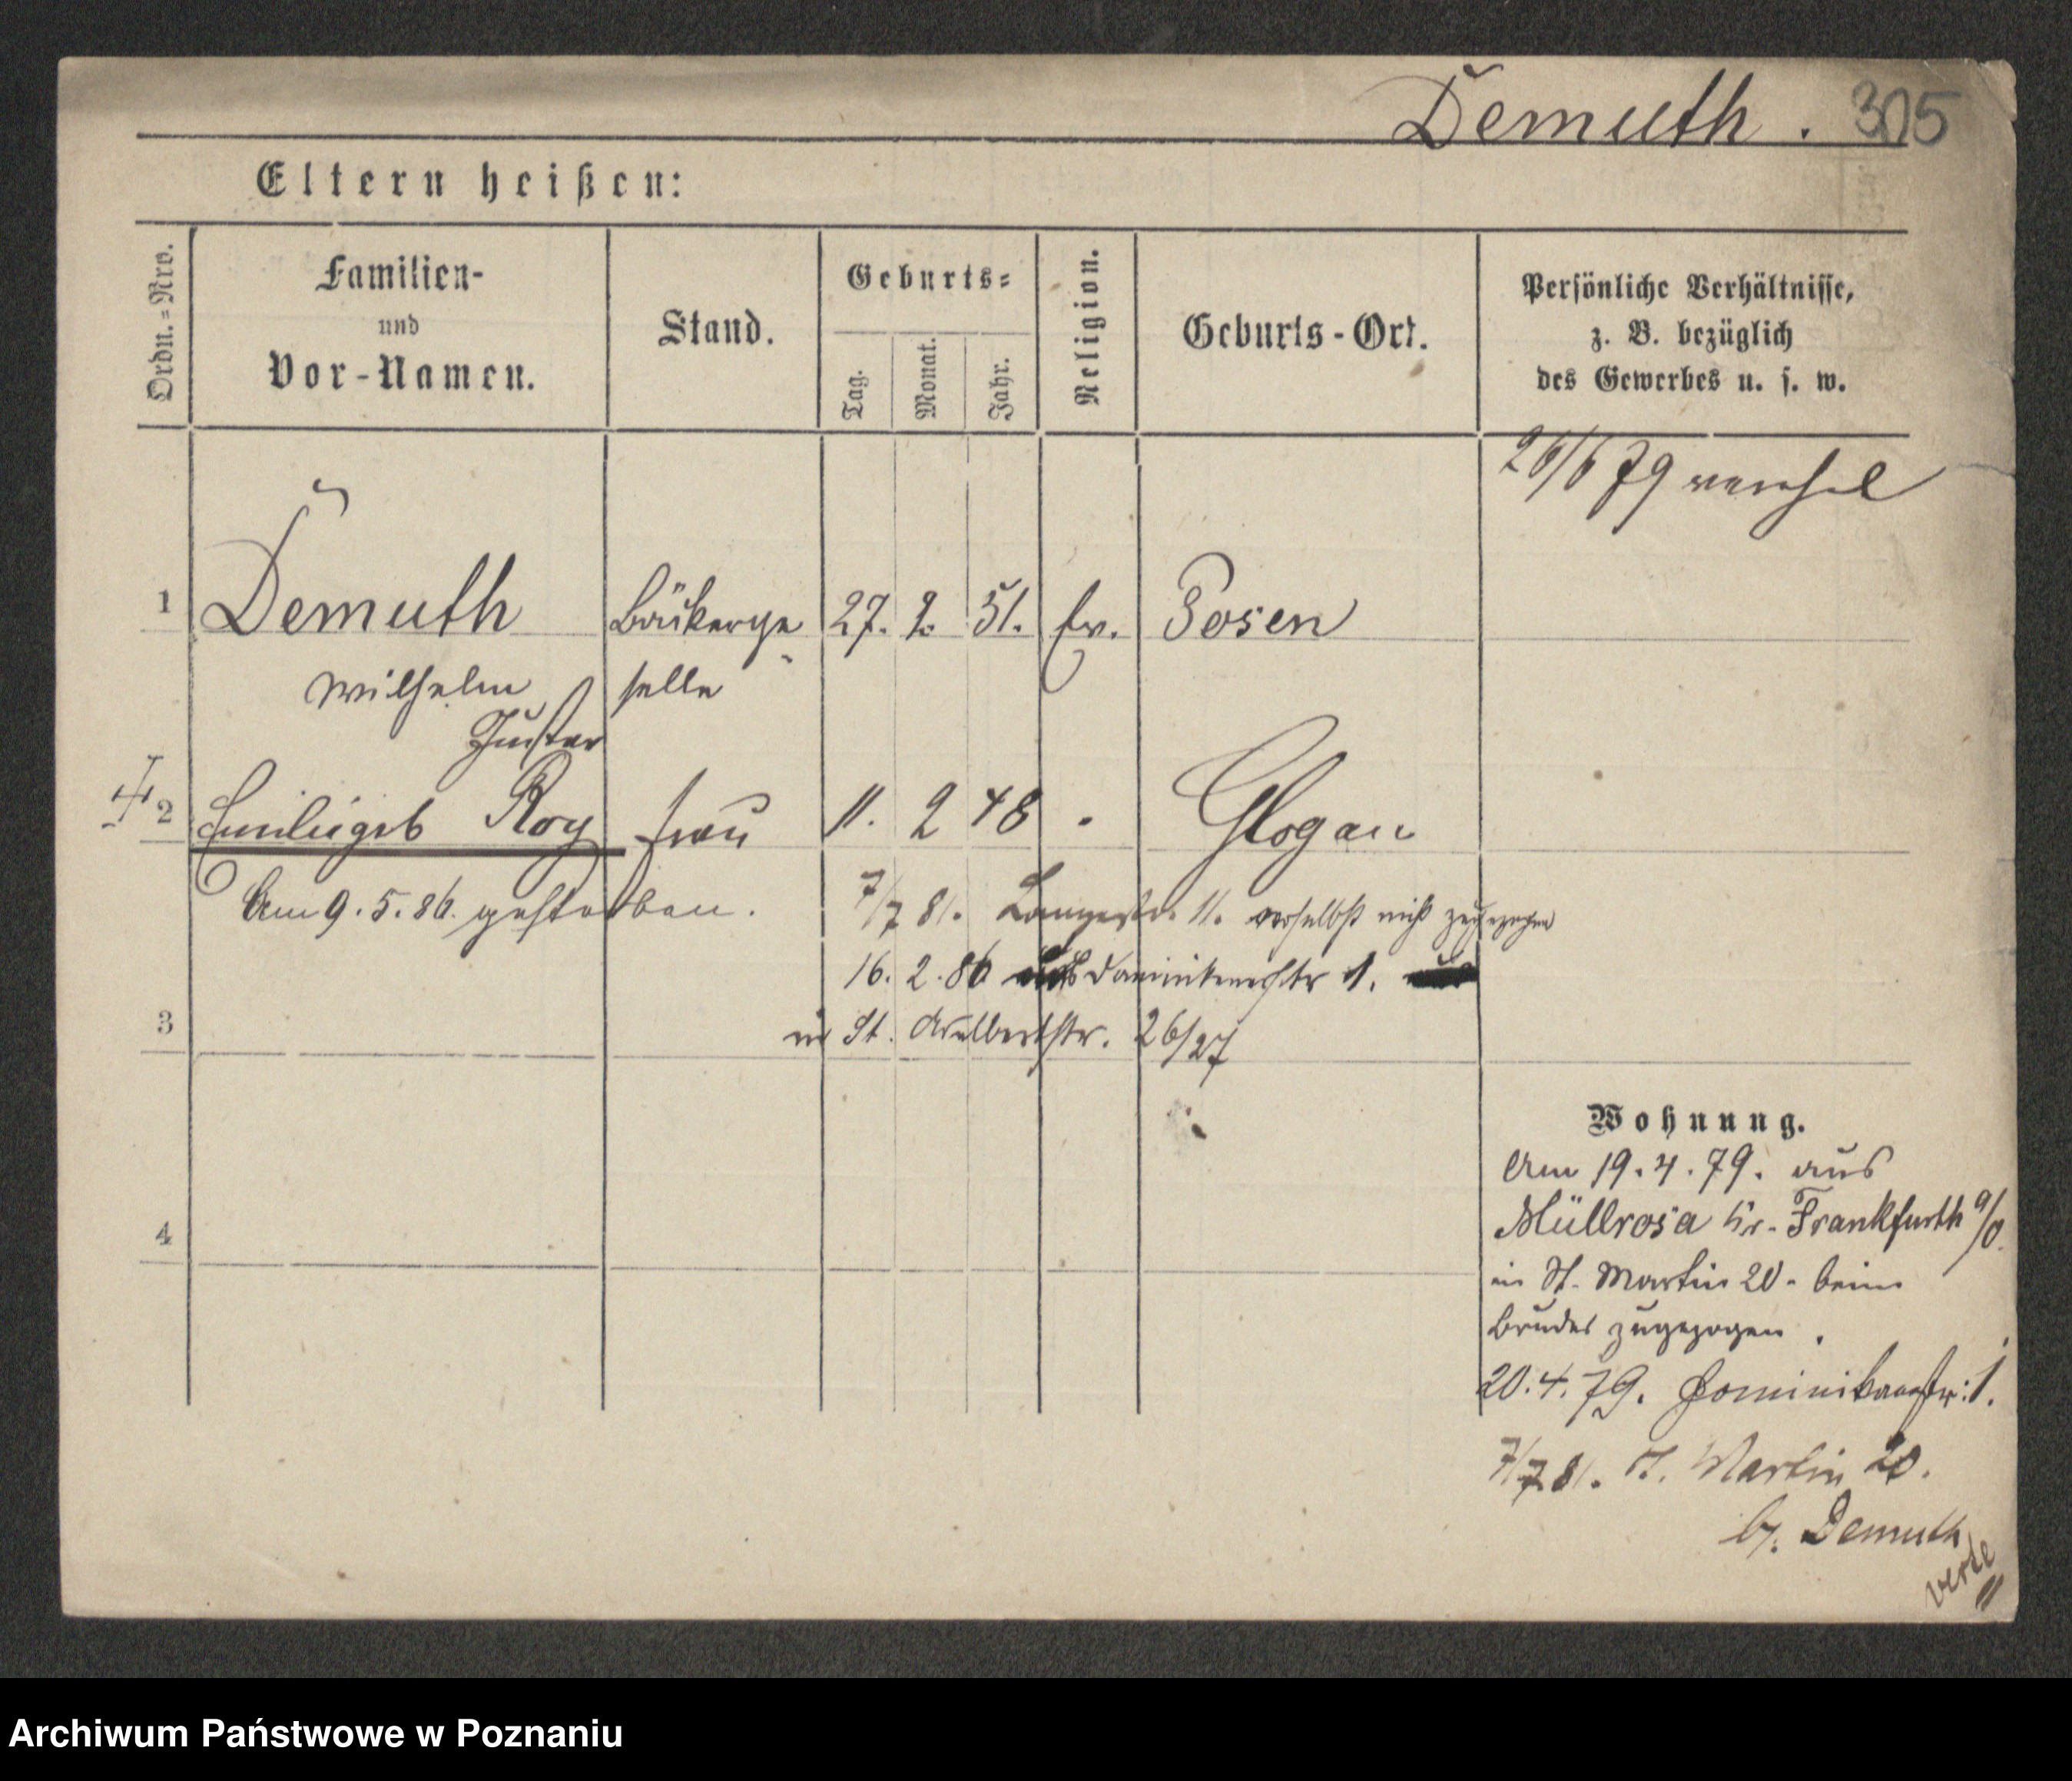 Demuth. 305
Eltern heißen:
Ordn.=Nro.
Familien-
und
Vor-Namen.
Stand.
Geburts=
Tag.
Monat.
Jahr.
Religion.
Geburts-Ort.
Persönliche Verhältnisse,
z. B. bezüglich
des Gewerbes u. s. w.
26/6 79
1 Demuth Bäckerge 27. 2. 51. Ev. Posen
Wilhelm selle
Gustav
2 Emilie geb Roy Frau 11. 2 48 Glogau
Am 9. 5. 86. gestorben.
7/7 81. Langestr. 11. nicht zugezogen
16. 2. 86 Dominikanerstr 1.
3 in St. Adalbertstr. 26/27
4
Wohnung.
Am 19. 4. 79. aus
Müllrosa Kr. Frankfurth a/O.
in St. Martin 20. beim
Bruder zugezogen.
20. 4. 79. Dominikanstr: 1.
7/7 81. St. Martin 20.
b/. Demuth
verte
Archiwum Państwowe w Poznaniu